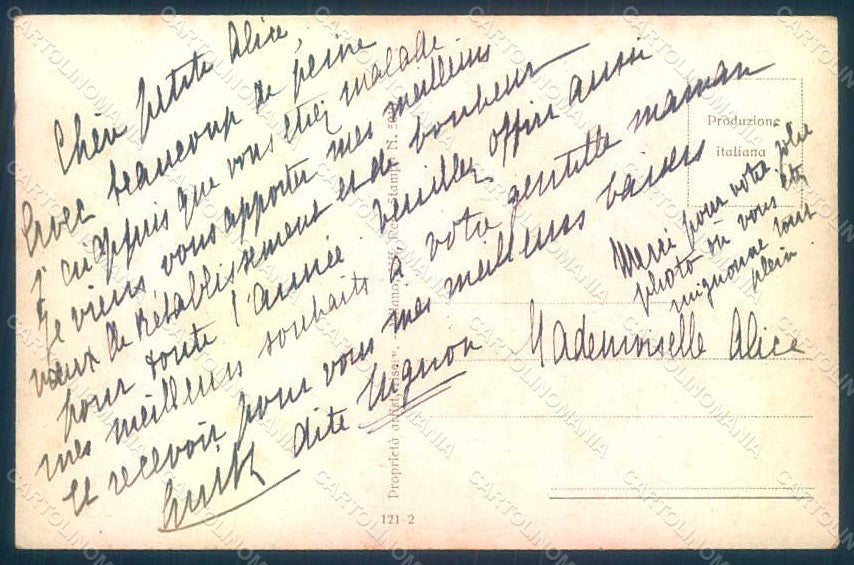 Chère petite Alice,
Avec beaucoup de peine
j'ai appris que vous étiez malade
je viens vous apporter mes meilleurs
vœux de rétablissement et de bonheur
pour toute l'année. Veuillez offrir aussi
mes meilleurs souhaits à votre gentille maman
et recevoir pour vous mes meilleurs baisers
dite Mignon
Merci pour votre jolie
photo où vous êtes
mignonne tout
plein.
Mademoiselle Alice
Produzione
italiana
Proprietà artist. riserv.
121-2
CARTOLINOMANIA